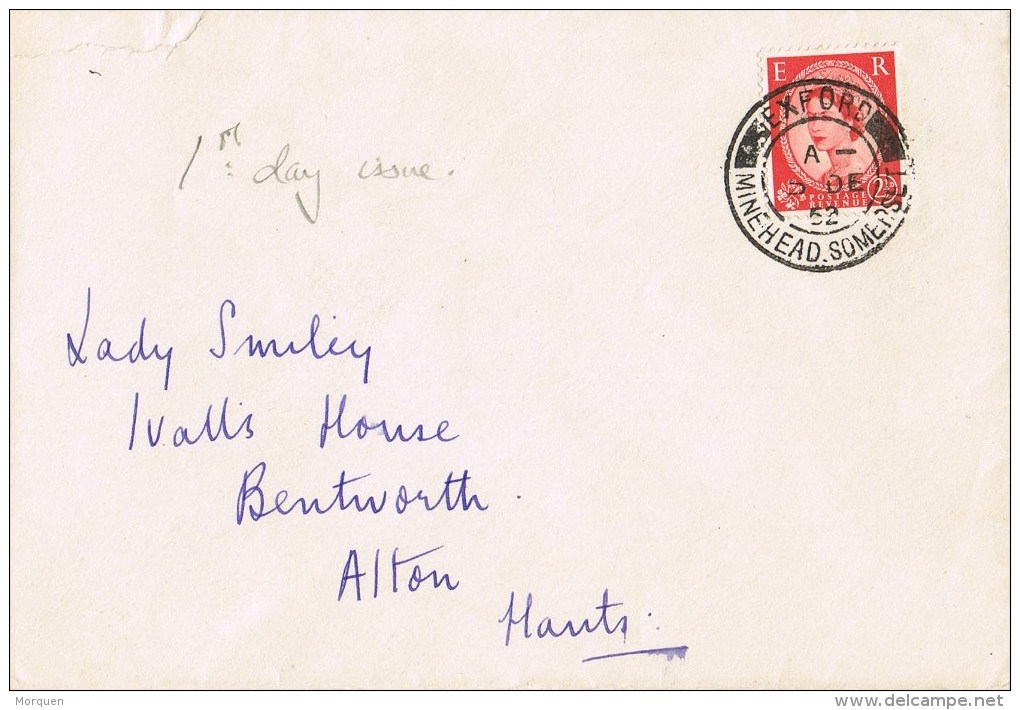 E R
EXFORD
A –
5 DE
52
MINEHEAD. SOMERSET
POSTAGE 2½D
REVENUE
1st day issue.
Lady Smiley
Ivalls House
Bentworth.
Alton
Hants:
Morquen
delcampe.net